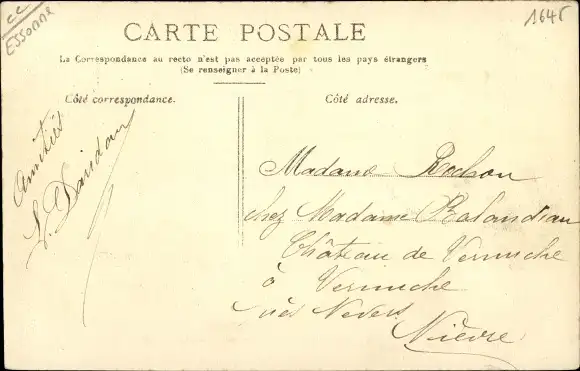 cc
Essonne
1645
CARTE POSTALE
La Correspondance au recto n'est pas acceptée par tous les pays étrangers
(Se renseigner à la Poste)
Côté correspondance.
Côté adresse.
Amitiés
Madame Rochon
chez Madame
Château de Vernuche
à Vernuche
près Nevers
Nièvre